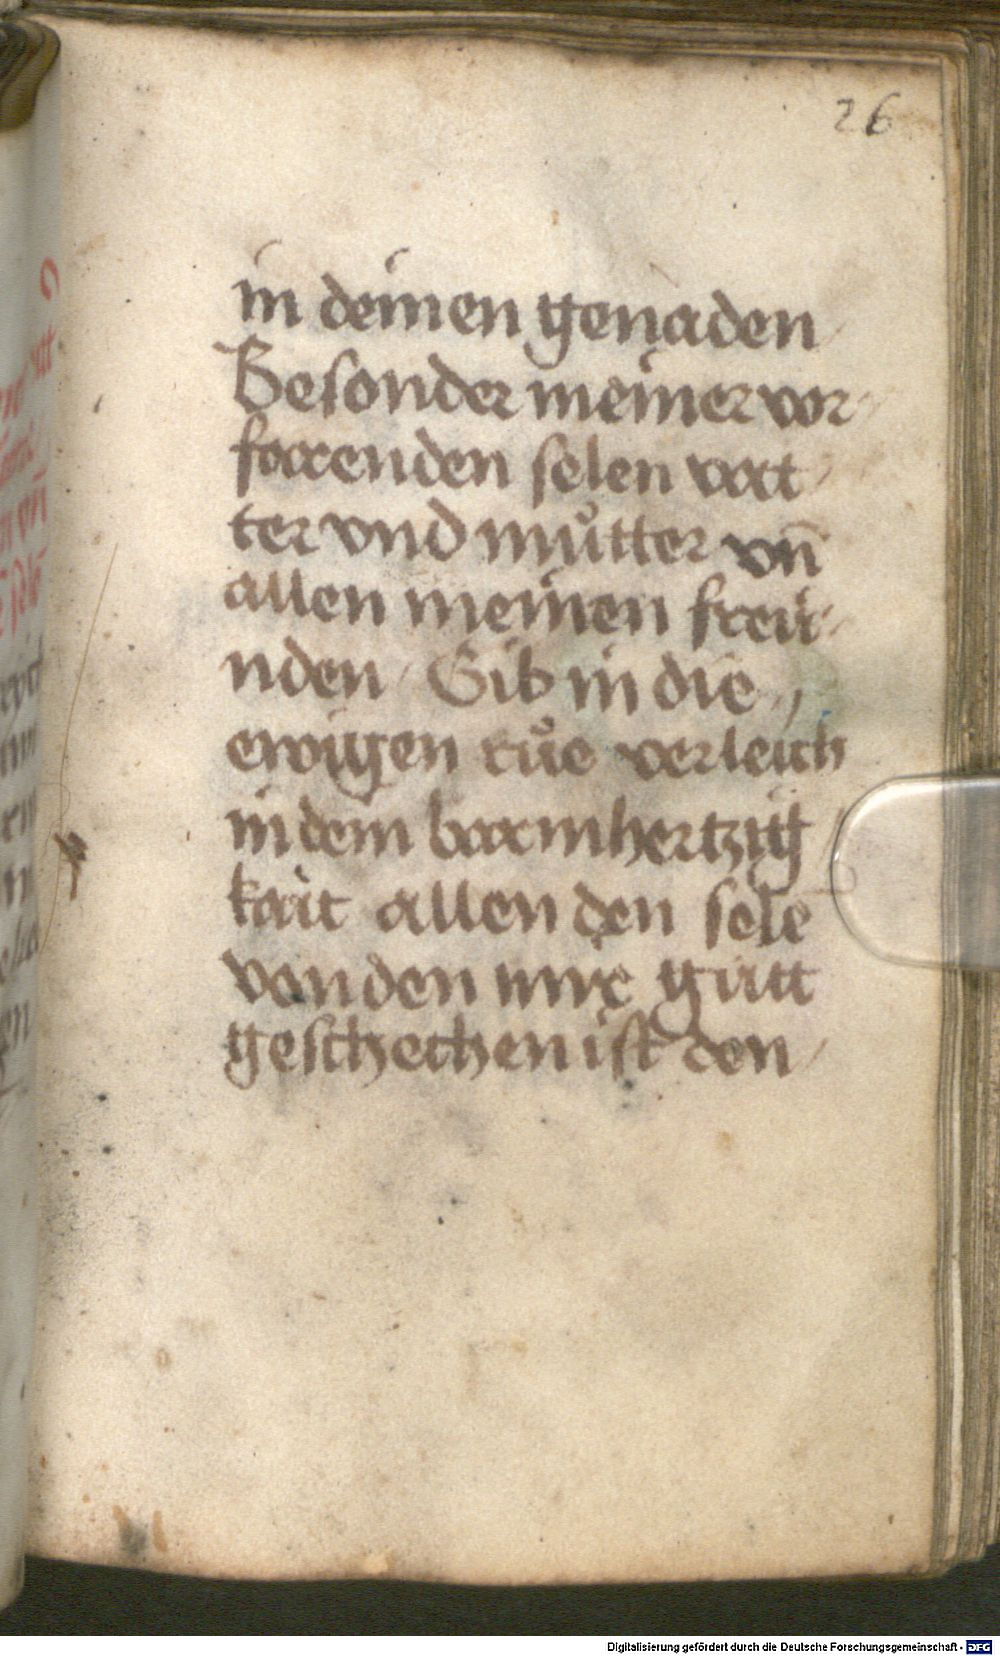 26
in deinen genaden
Besonder meiner vor
farenden selen vat
ter vnd muͦtter vn̄
allen meinen freü
nden / Gib in die
ewigen ruͦe verleich
in dein barmhertzig
kait allen den sele
von den mir gutt
geschechen ist den
Digitalisierung gefördert durch die Deutsche Forschungsgemeinschaft - DFG